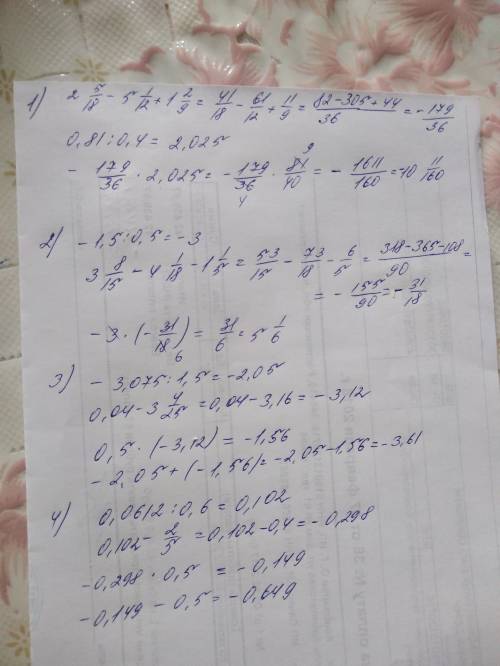 1) 2 5/18 - 5 1/12 + 1 2/9 = 41/18 - 61/12 + 11/9 = (82-305+44)/36 = - 179/36
0,81 : 0,4 = 2,025
- 179/36 · 2,025 = - 179/36 4 · 81 9/40 = - 1611/160 = -10 11/160
2) -1,5 : 0,5 = -3
3 8/15 - 4 1/18 - 1 1/5 = 53/15 - 73/18 - 6/5 = (318-365-108)/90 =
= - 155/90 = - 31/18
-3 · (- 31/18 6) = 31/6 = 5 1/6
3) -3,075 : 1,5 = -2,05
0,04 - 3 4/25 = 0,04 - 3,16 = -3,12
0,5 · (-3,12) = -1,56
-2,05 + (-1,56) = -2,05 - 1,56 = -3,61
4) 0,0612 : 0,6 = 0,102
0,102 - 2/5 = 0,102 - 0,4 = -0,298
-0,298 · 0,5 = -0,149
-0,149 - 0,5 = -0,649